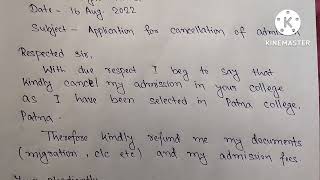 Date- 16 Aug 2022
Subject- Application for cancellation of
Respected sir,
With due respect I beg to say that
kindly cancel my admission in your college
as I have been selected in Patna college,
Patna.
Therefore kindly refund me my documents
(migration, clc etc) and my admission fees.
KINEMASTER